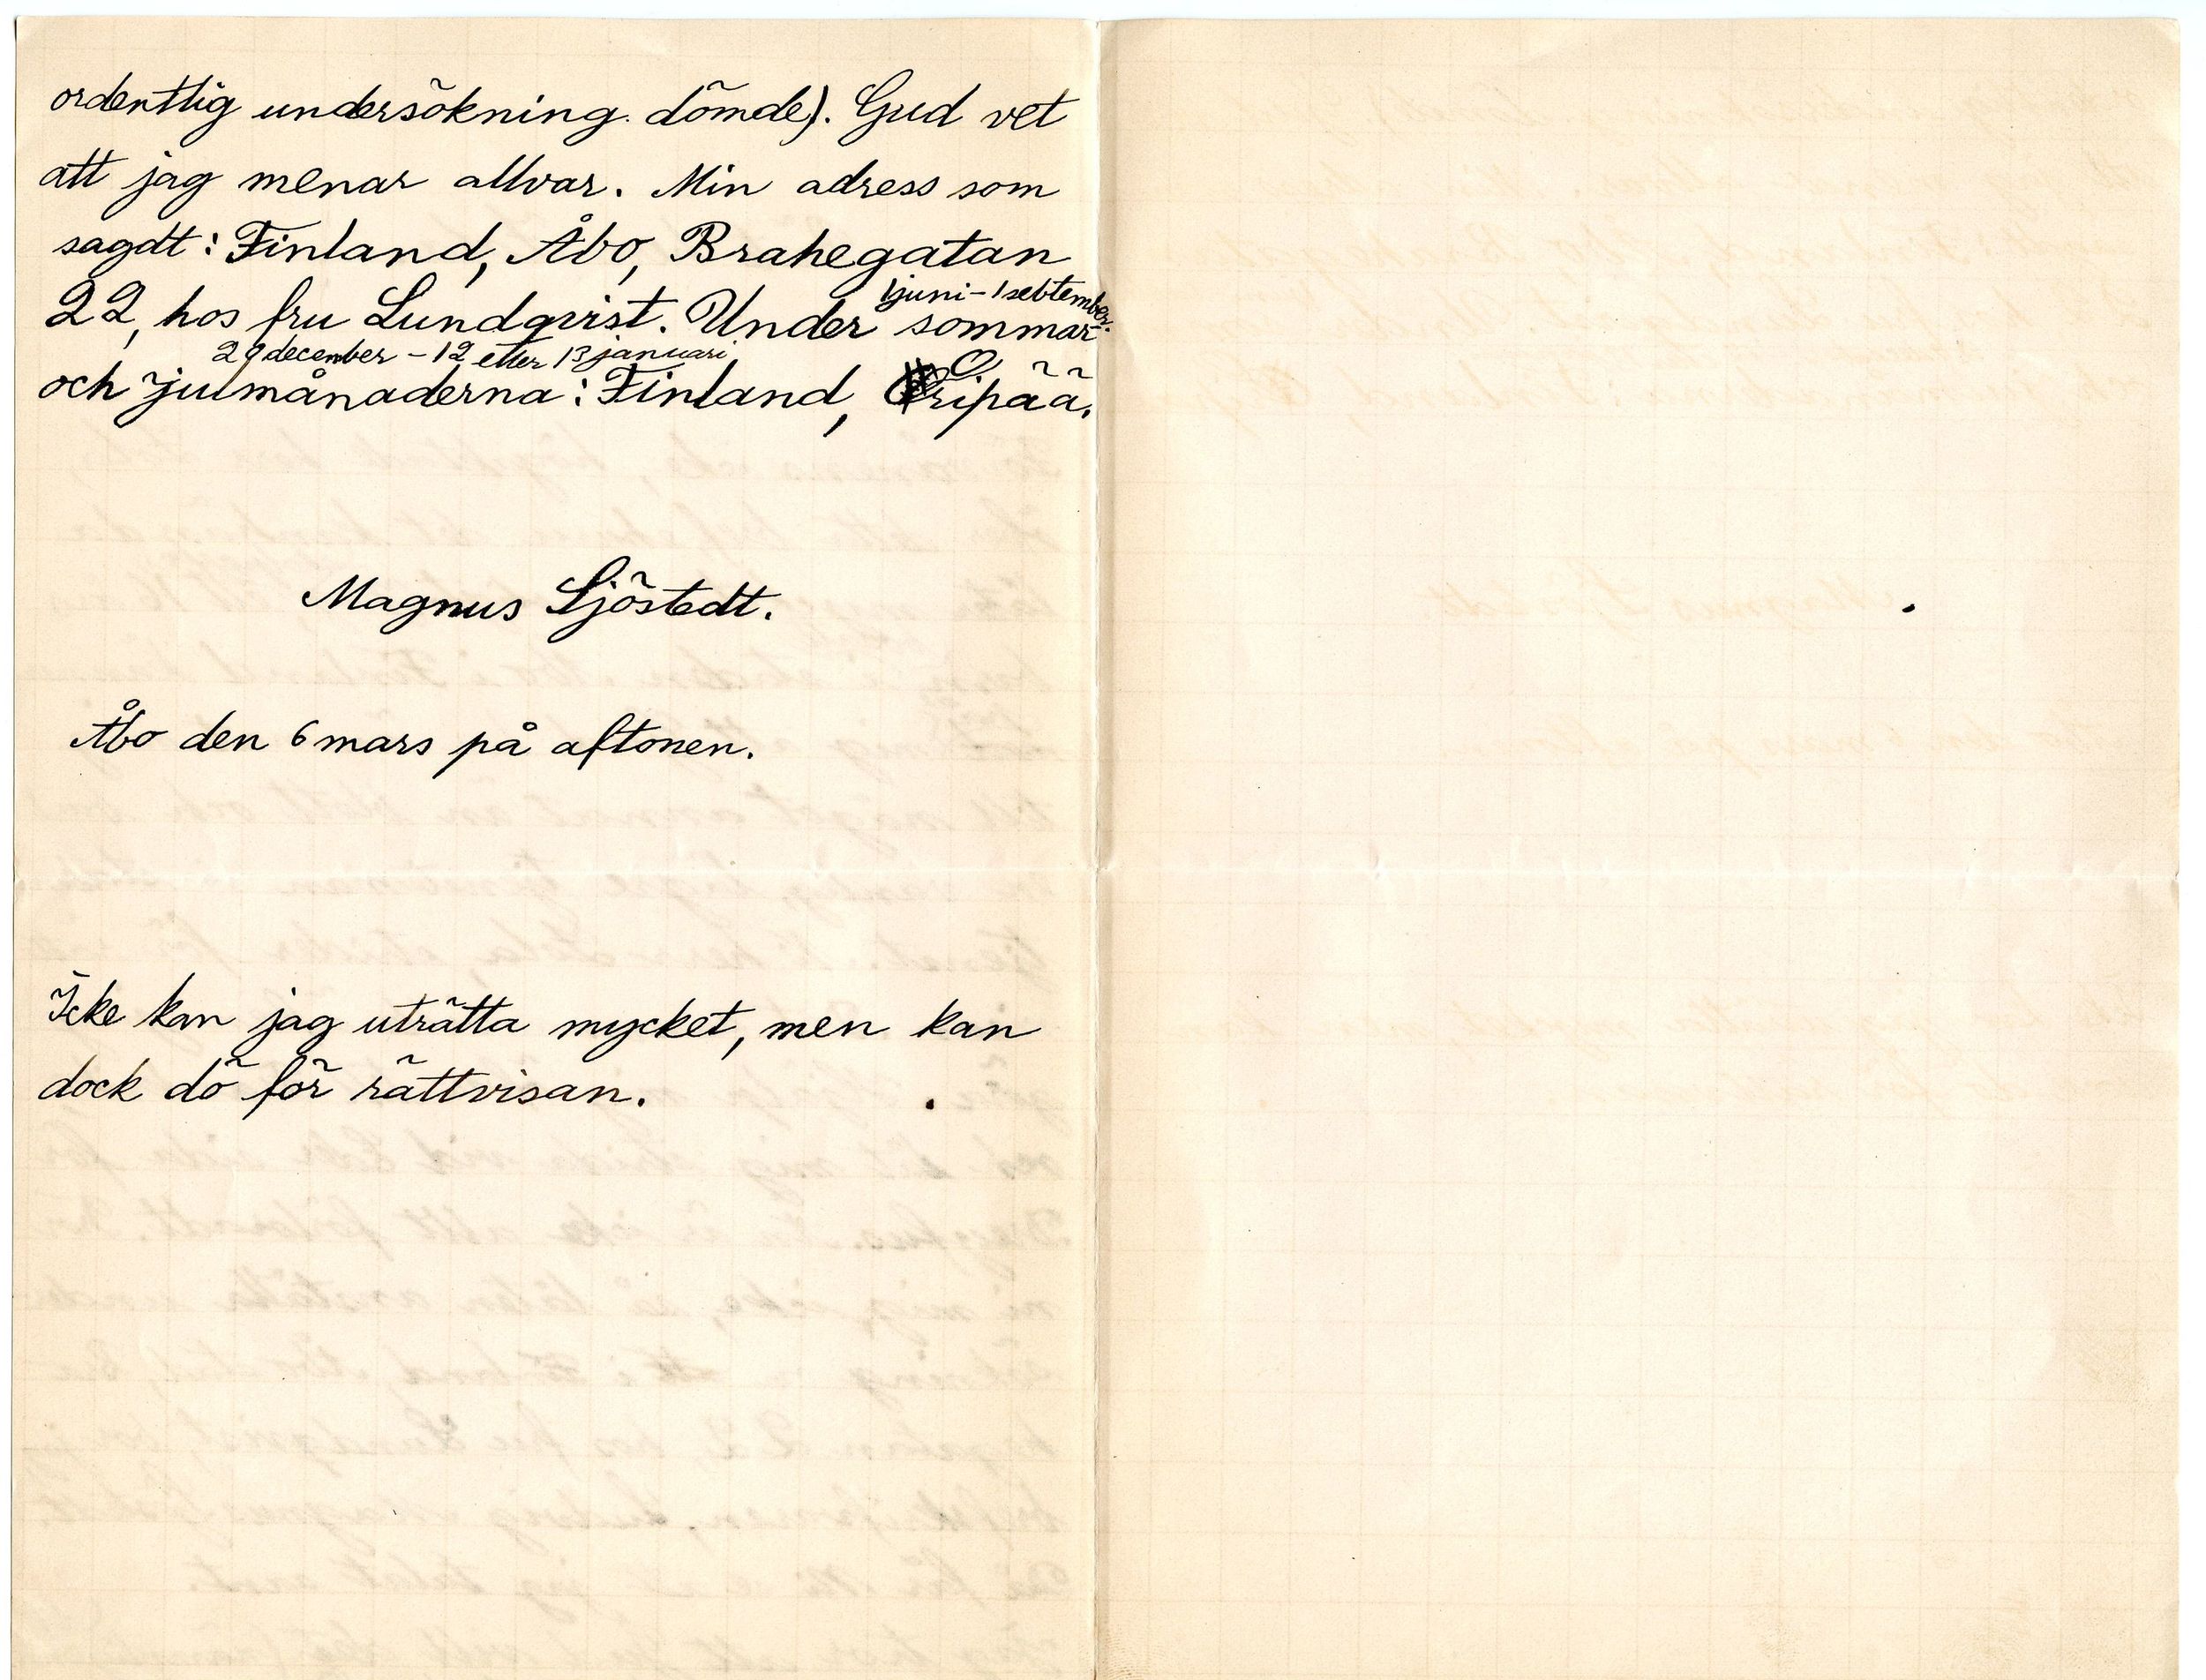 ordenttlig undersökning dömde). Gud vet
att jag menar allvar. Min adress som
sagdt: Finland, Åbo, Brahegatan
1juni–1september.
22, hos fru Lundqvist. Under sommar-
29december – 12 eller 13januari
och julmånaderna: Finland, Oripää.
Magnus Sjöstedt.
Åbo den 6 mars på aftonen.
Icke kan jag uträtta mycket, men kan
dock dö för rättvisan.